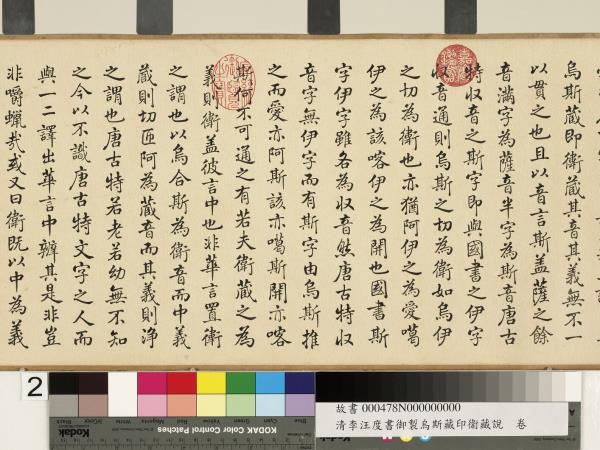 烏斯藏即衛藏其音其義無不一
以貫之也且以音言斯盖薩之餘
音滿字為薩音半字為斯音唐古
特収音之斯字即與國書之伊字
収音通則烏斯之切為衛如烏伊
之切為衛也亦猶阿伊之為愛噶
伊之為該喀伊之為開也國書斯
字伊字雖各為収音然唐古特収
音字無伊字而有斯字由烏斯推
之而愛亦阿斯該亦噶斯開亦喀
斯何不可通之有若夫衛藏之為
義則衛盖彼言中也非華言置衛
之謂也以烏合斯為衛音而中義
藏則切匝阿為藏音而其義則淨
之謂也唐古特若老若幼無不知
之今以不識唐古特文字之人而
與一二譯出華言中辨其是非豈
非嚼蠟哉或又曰衛既以中為義
2
Kodak
KODAK Color Control Patches
Blue
Cyan
Green
Yellow
Red
Magenta
White
3/Color
Black
故書 000478N000000000
清李汪度書御製烏斯藏印衛藏說 卷